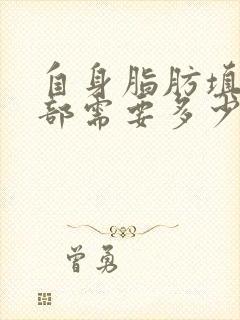 自身脂肪填
部需要多少
曾勇